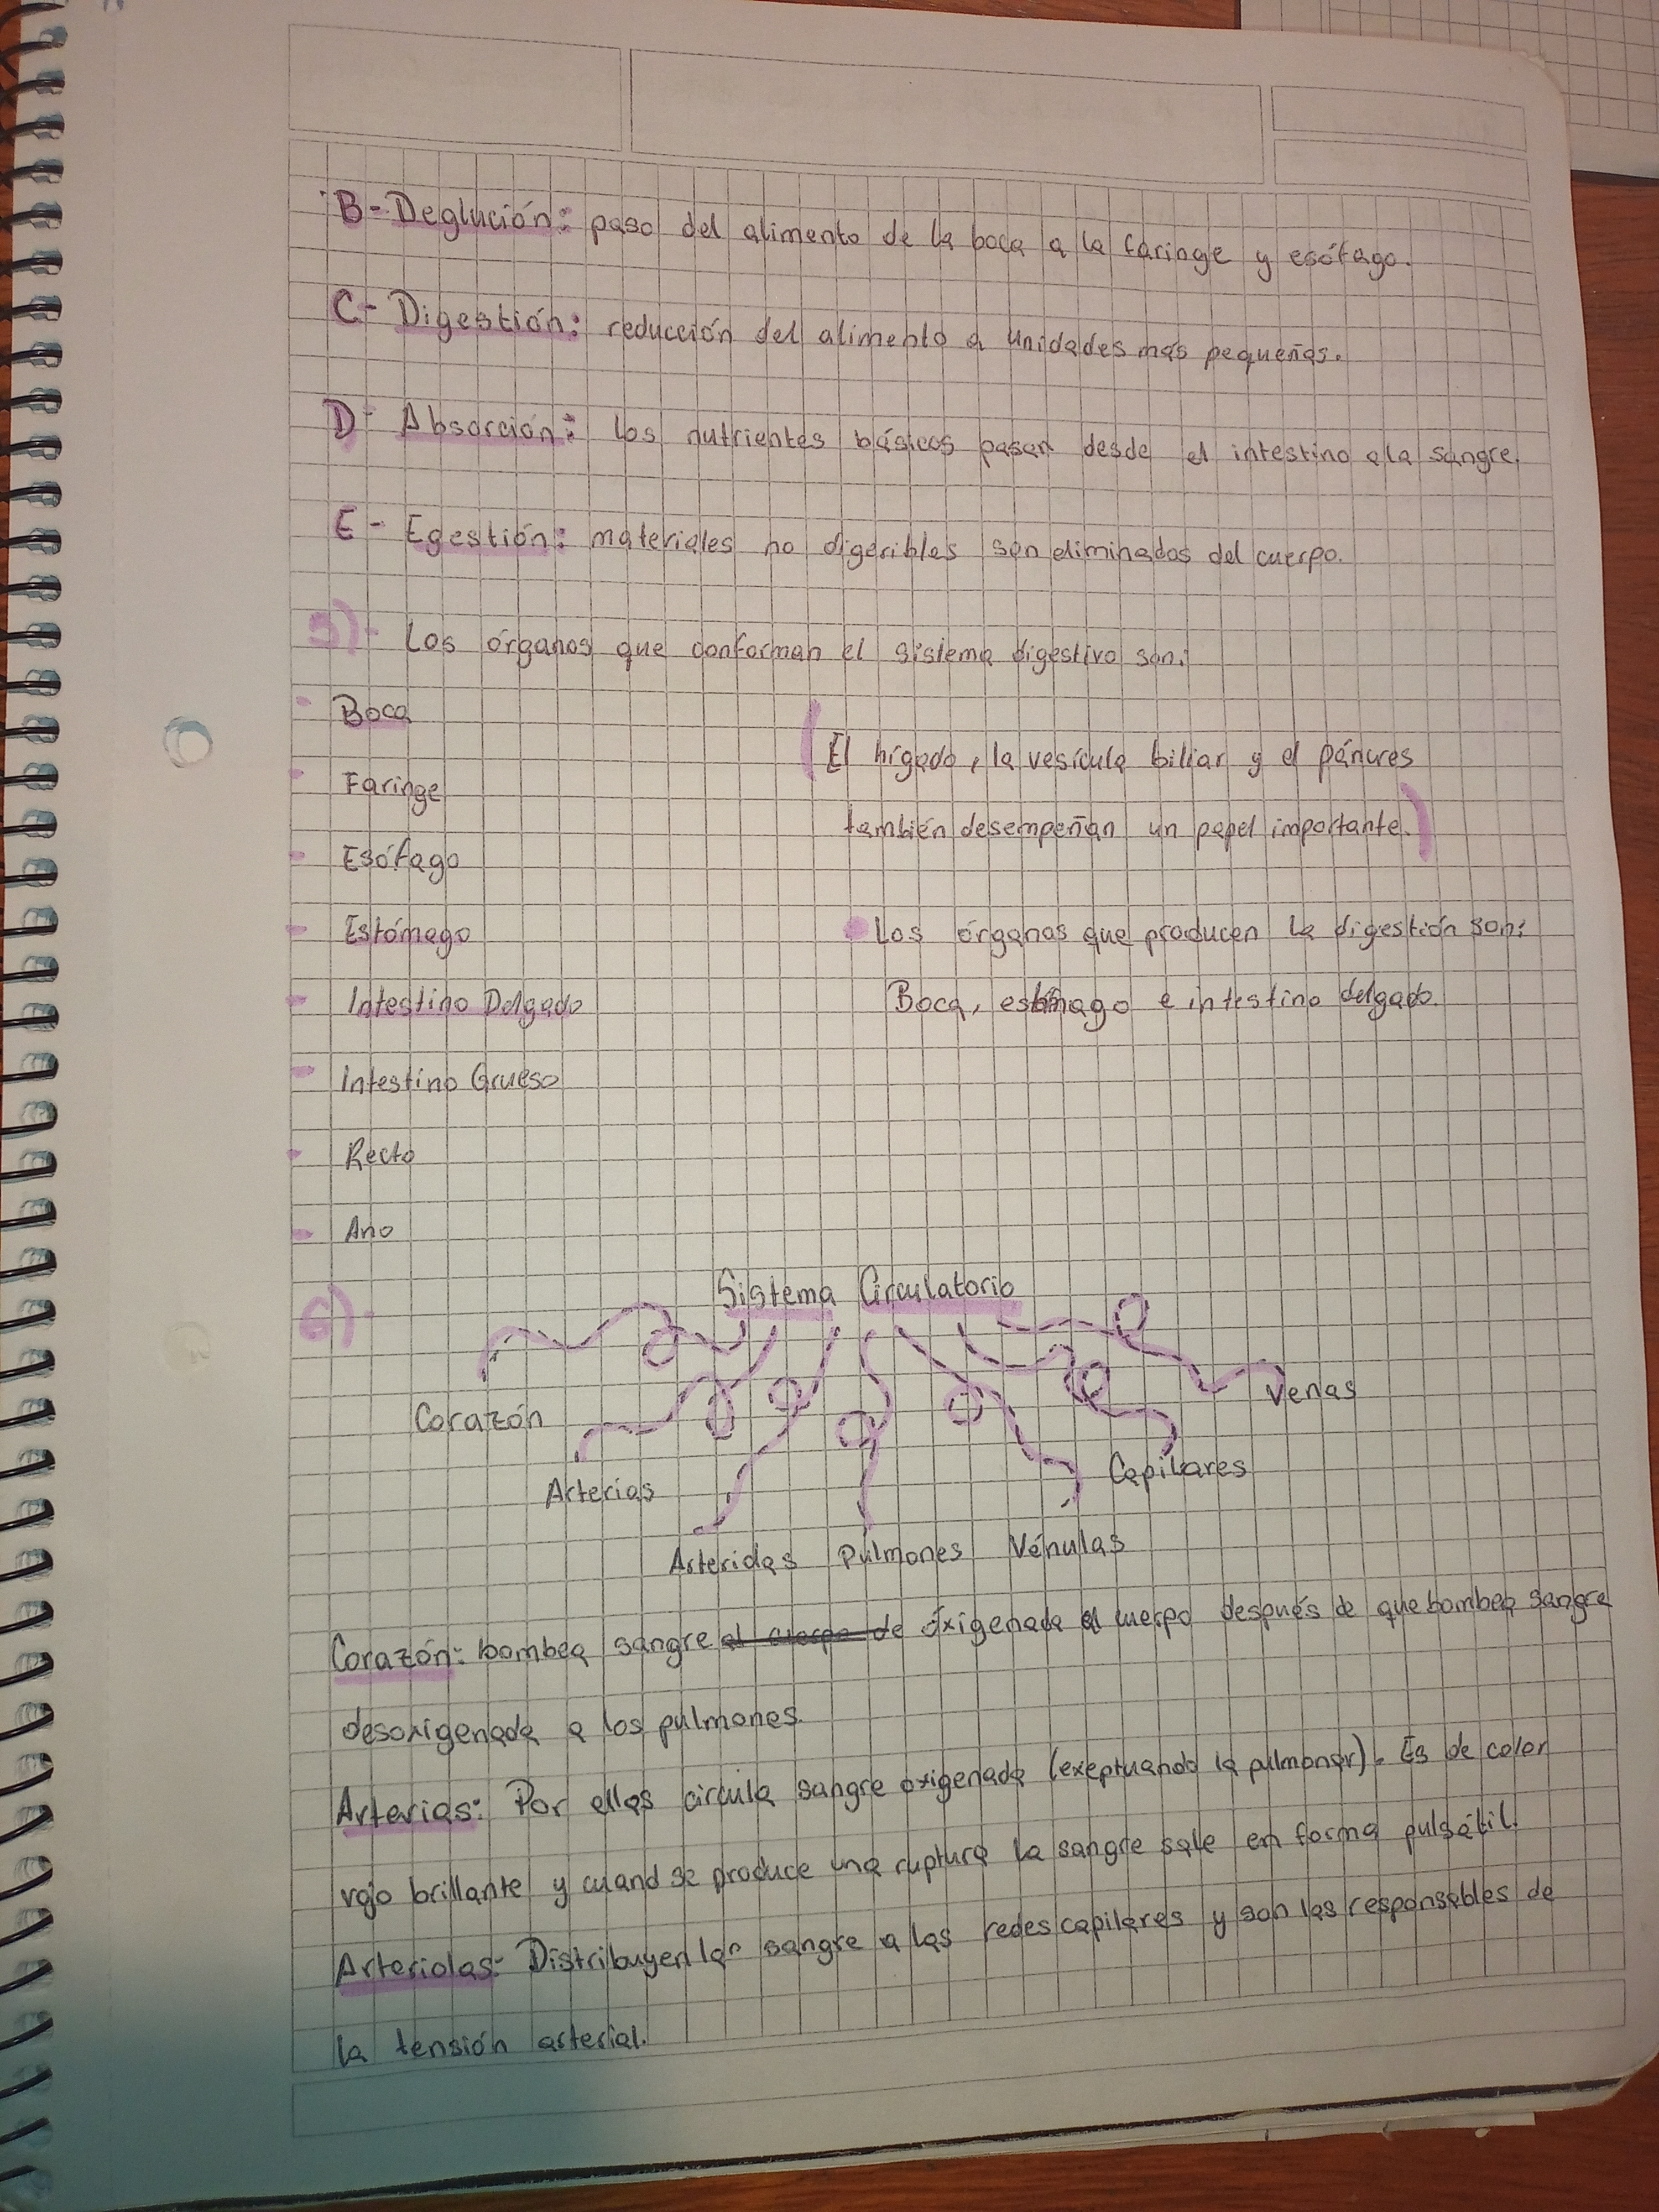 B- Deglución: paso del alimento de la boca a la faringe y esófago.
C- Digestión: reducción del alimento a unidades más pequeñas.
D- Absorción: los nutrientes básicos pasan desde el intestino a la sangre.
E- Egestión: materiales no digeribles son eliminados del cuerpo.
5)- Los órganos que conforman el sistema digestivo son:
- Boca
- Faringe
- Esófago
- Estómago
- Intestino Delgado
- Intestino Grueso
- Recto
- Ano
(El hígado, la vesícula biliar y el páncres
también desempeñan un papel importante.)
• Los órganos que producen la digestión son:
Boca, estómago e intestino delgado.
6)- Sistema Circulatorio
Corazón
Arterias
Arteriolas
Pulmones
Vénulas
Capilares
Venas
Corazón: bombea sangre al cuerpo de oxigenada al cuerpo después de que bombea sangre
desoxigenada a los pulmones.
Arterias: Por ellas circula sangre oxigenada (exeptuando la pulmonar). Es de color
rojo brillante y cuand se produce una ruptura la sangre sale en forma pulsátil.
Arteriolas: Distribuyen la sangre a las redes capilares y son las responsables de
la tensión arterial.